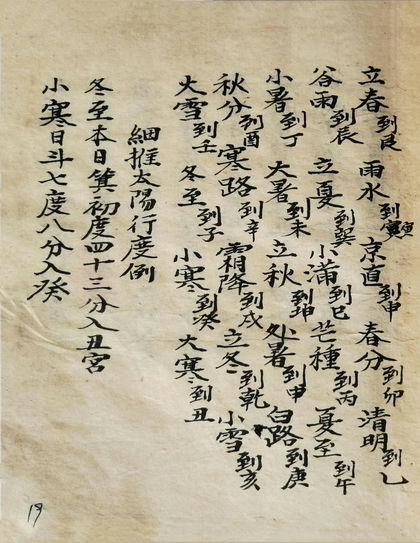 立春到艮 雨水到寅 京直到申 春分到卯 清明到乙
谷雨到辰 立夏到巽 小滿到巳 芒種到丙 夏至到午
小暑到丁 大暑到未 立秋到坤 处暑到申 白路到庚
秋分到酉 寒路到辛 霜降到戌 立冬到乾 小雪到亥
大雪到壬 冬至到子 小寒到癸 大寒到丑
細推太陽行度倒
冬至本日箕初度四十三分入丑宮
小寒日斗七度八分入癸
19